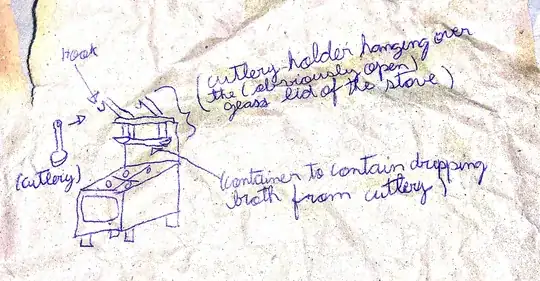 Hook
(cutlery holder hanging over
the (obviously open)
glass lid of the stove)
(cutlery)
(container to contain dripping
broth from cutlery)